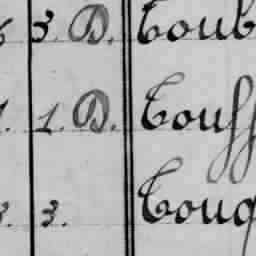 3. D. Toub
1. 1. D. Touff
3. 3. Touq